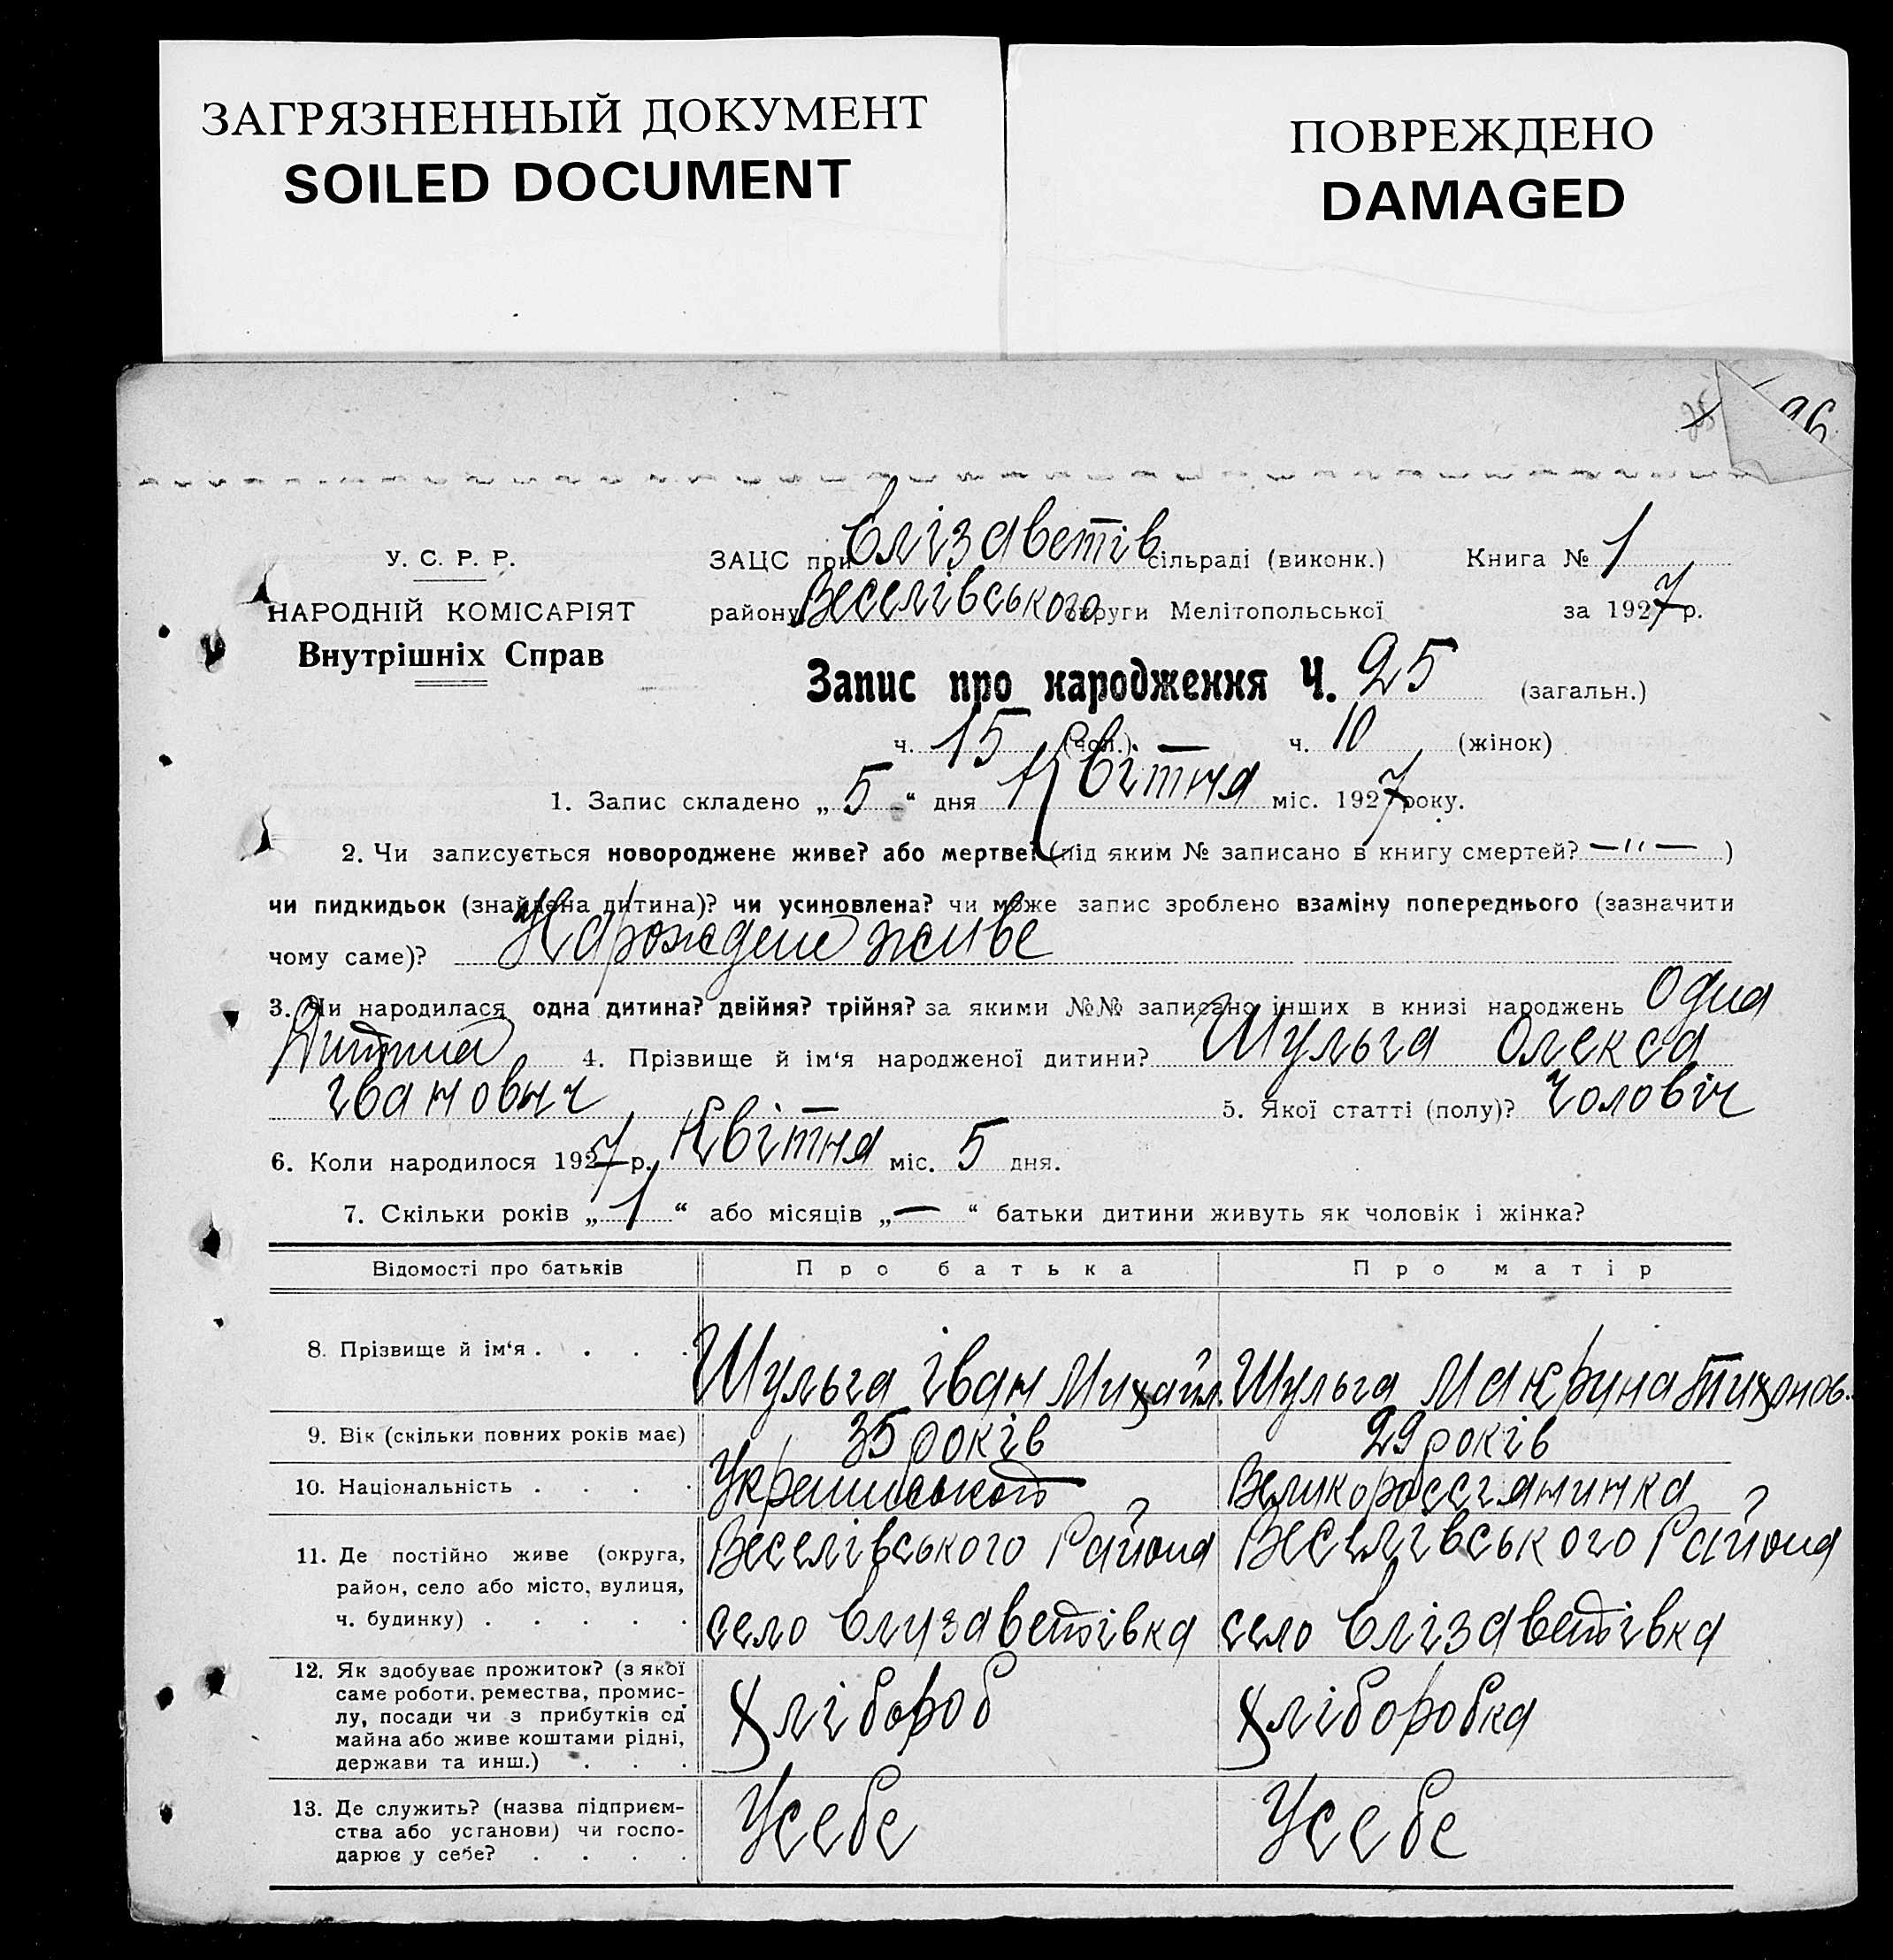 ЗАГРЯЗНЕННЫЙ ДОКУМЕНТ
SOILED DOCUMENT
ПОВРЕЖДЕНО
DAMAGED
96
У. С. Р. Р.
НАРОДНІЙ КОМІСАРІЯТ
Внутрішніх Справ
ЗАЦС при Єлізаветів сільраді (виконк.) Книга № 1
району Веселівського округи Мелітопольської за 1927 р.
Запис про народження Ч. 25 (загальн.)
ч. 15 (чол.) — ч. 10 (жінок)
1. Запис складено „ 5 “ дня Квітня міс. 1927 року.
2. Чи записується новороджене живе? або мертве? (під яким № записано в книгу смертей? —"— )
чи пидкидьок (знайдена дитина)? чи усиновлена? чи може запис зроблено взаміну попереднього (зазначити
чому саме)? Нарождене живе
3. Чи народилася одна дитина? двійня? трійня? за якими №№ записано інших в книзі народжень Одна
Дитина 4. Прізвище й ім'я народженої дитини? Шульга Олекса
іванович 5. Якої статті (полу)? Чоловіч
6. Коли народилося 1927 р. Квітня міс. 5 дня.
7. Скільки років „ 1 “ або місяців „ — “ батьки дитини живуть як чоловік і жінка?
Відомості про батьків Про батька Про матір
8. Прізвище й ім'я . . . . Шульга іван Михайл. Шульга Макрина Тихонов.
9. Вік (скільки повних років має) 35 років 29 років
10. Національність . . . . Великороссіянинка
11. Де постійно живе (округа, Веселівського Района Веселівського Района
район, село або місто, вулиця,
ч. будинку) . . . . . село Єлизаветівка село Єлізаветівка
12. Як здобуває прожиток? (з якої
саме роботи, ремества, промис-
лу, посади чи з прибутків од Хлібороб Хліборобка
майна або живе коштами рідні,
держави та инш.) . . .
13. Де служить? (назва підприєм-
ства або установи) чи госпо- Усебе Усебе
дарює у себе? . . . .